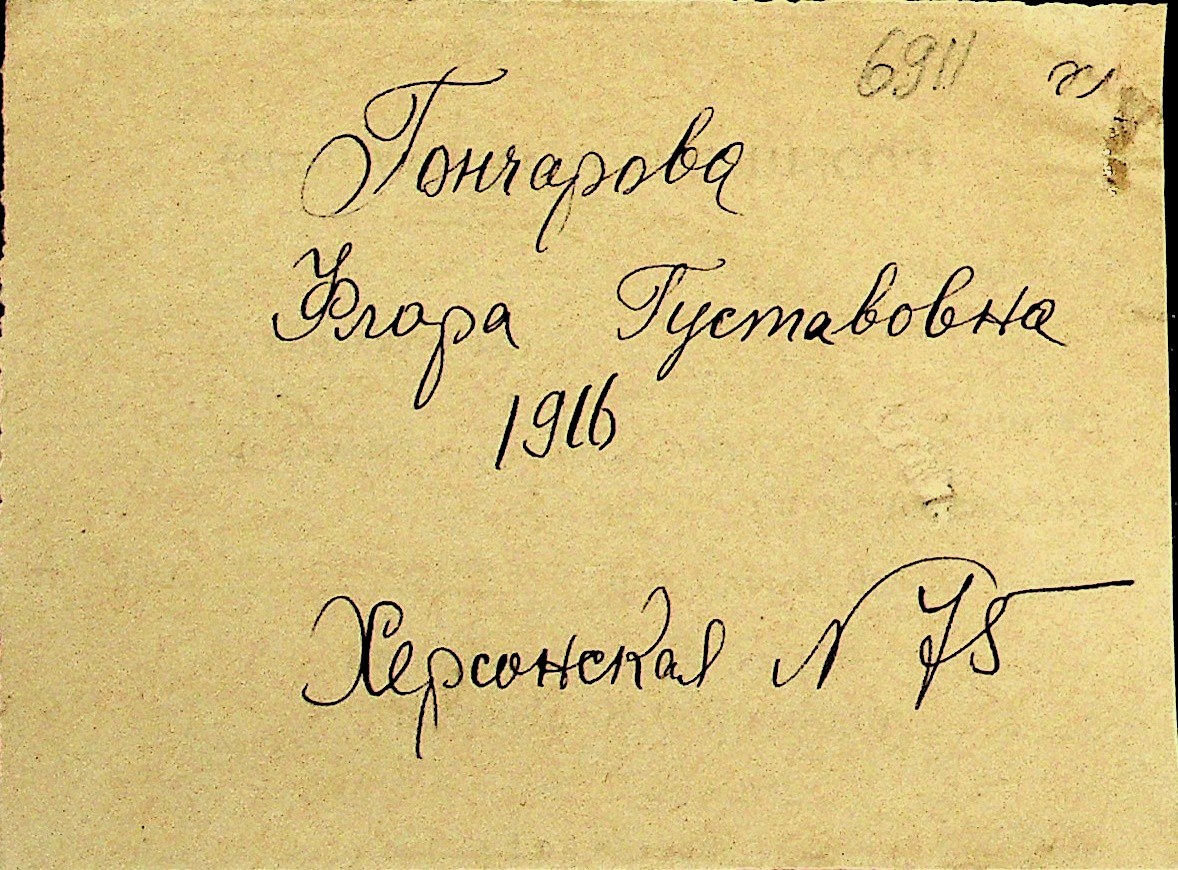 6911
Гончарова
Флора Густавовна
1916
Херсонская N 75